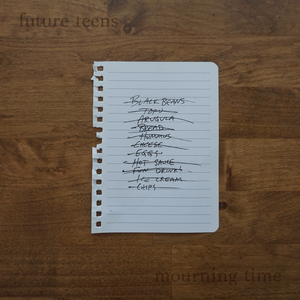 future teens
BLACK BEANS
TOFU
ARUGULA
BREAD
HUMMUS
CHEESE
EGGS
HOT SAUCE
FUN DRINKS
ICE CREAM
CHIPS
mourning time